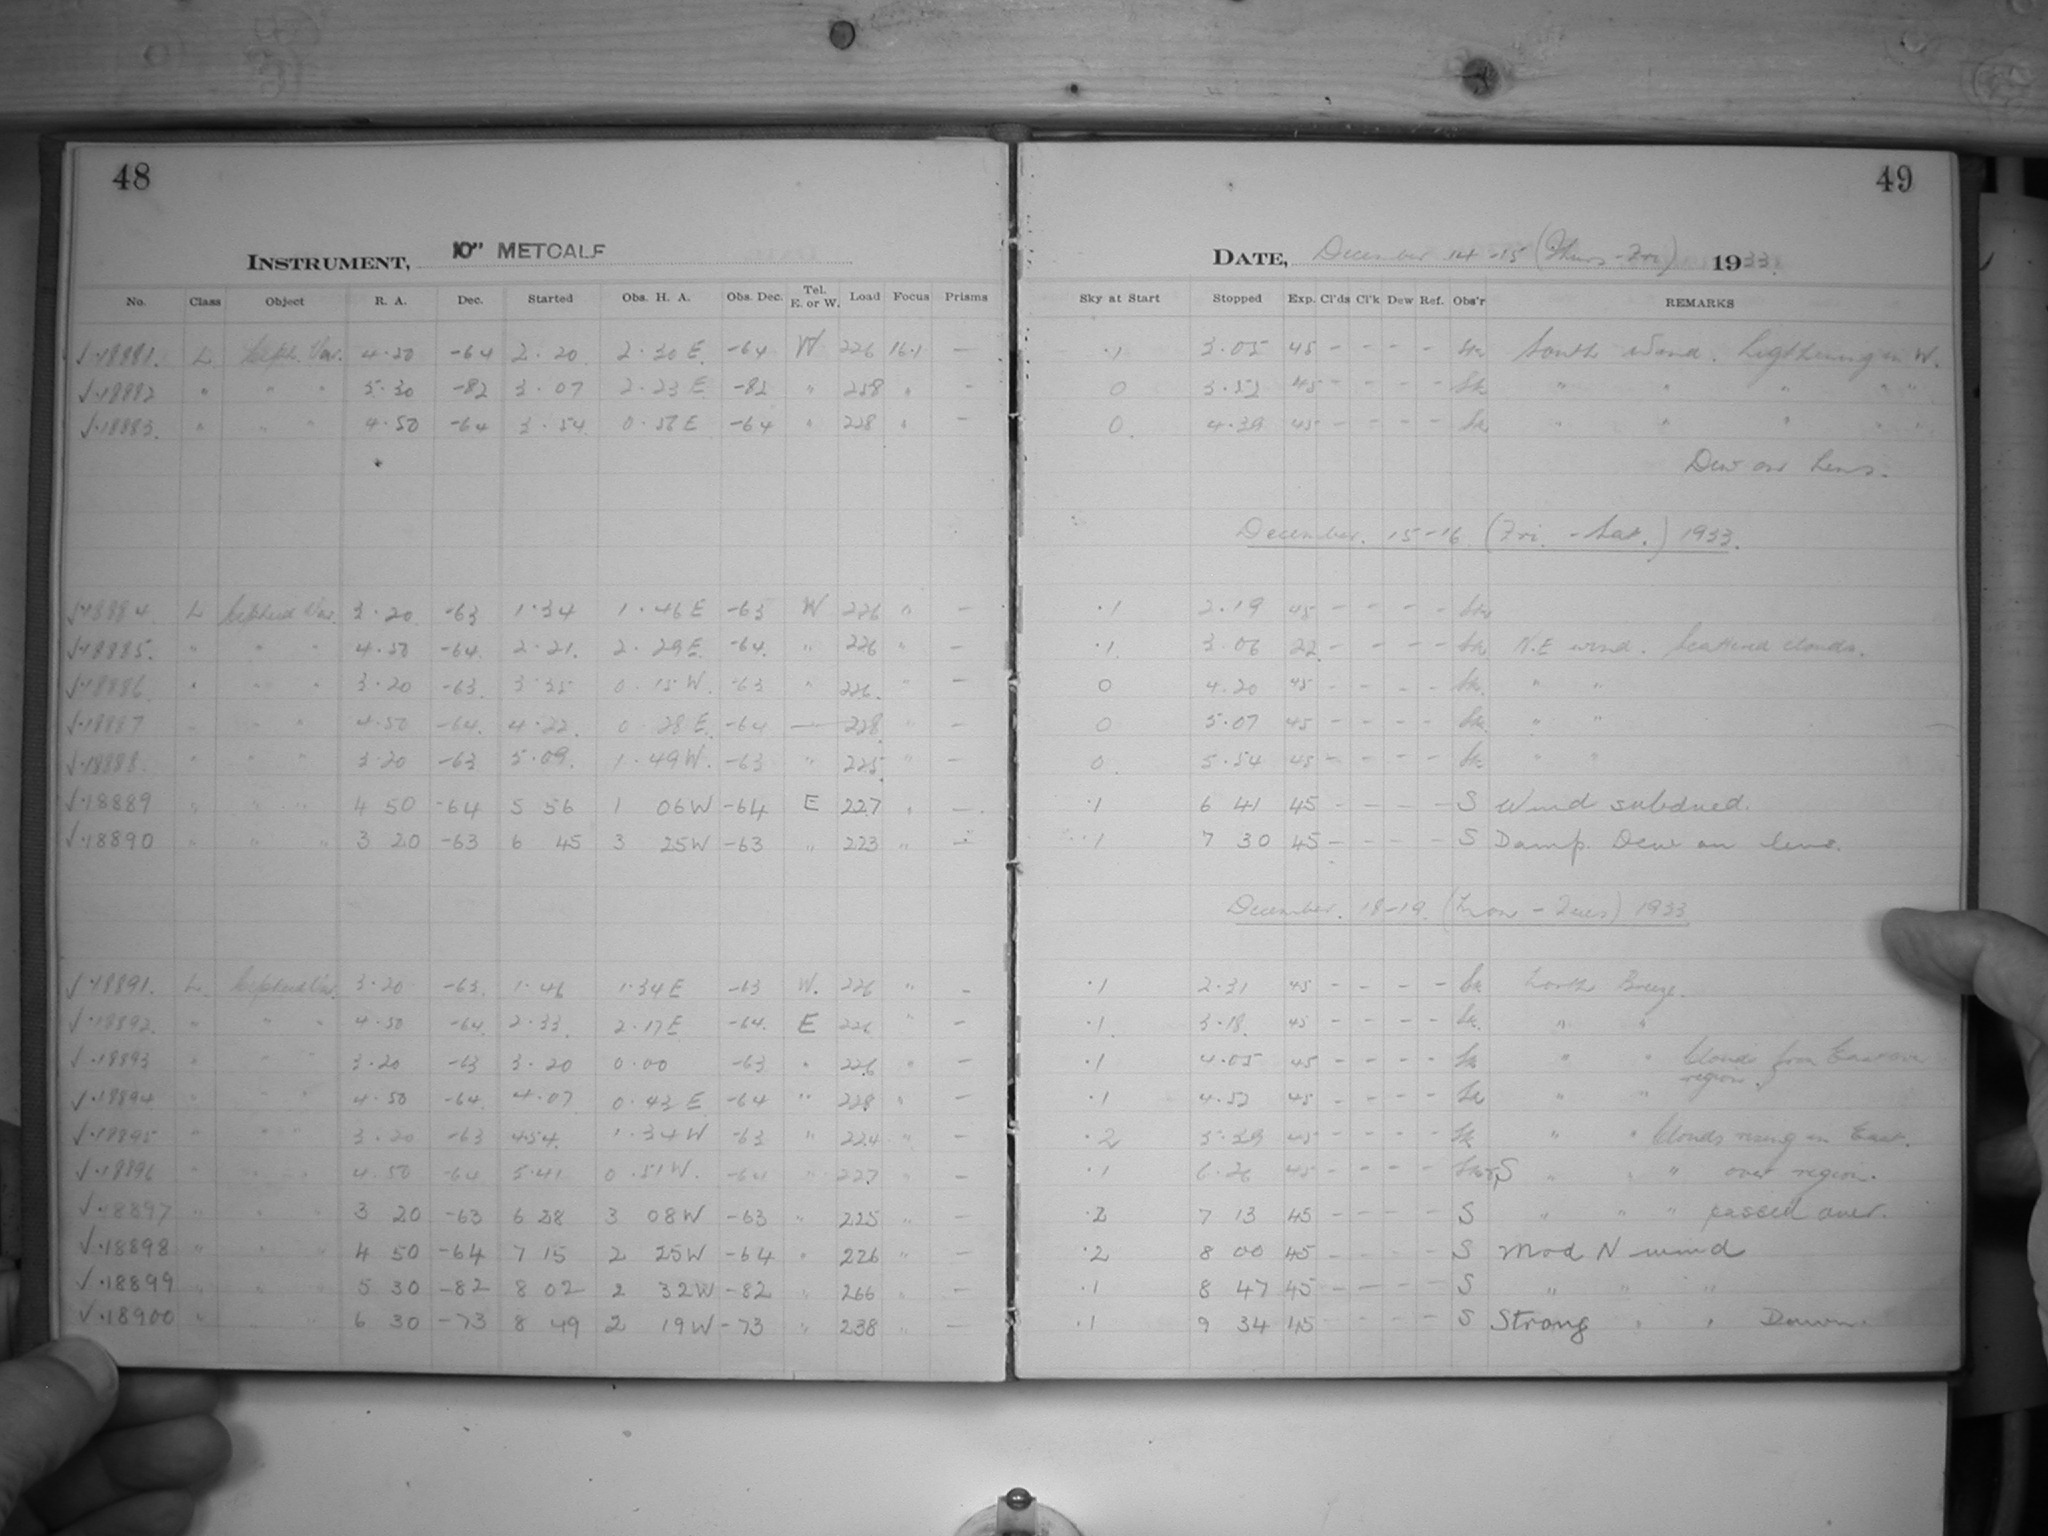 48
INSTRUMENT, 10" METCALF
No. Class Object R. A. Dec. Started Obs. H. A. Obs. Dec. Tel. E. or W. Load Focus Prisms
√·18881. L Ceph. Var. 4·50 -64 2·20 2·30 E. -64 W 226 16·1 —
√·18882 " " " 5·30 -82 3·07 2·23 E -82 " 258 " -
√·18883. " " " 4·50 -64 3·54 0·56 E -64 " 228 " -
√·18884 L Cepheid Var. 3·20 -63 1·34 1·46 E -63 W 226 " —
√·18885. " " " 4·50 -64. 2·21. 2·29 E. -64. " 226 " —
√·18886. " " " 3·20 -63. 3·35 0·15 W. -63 " 226. " —
√·18887 " " " 4·50 -64. 4·22. 0·28 E. -64 " 228 " —
√·18888. " " " 3·20 -63 5·09. 1·49 W. -63 " 225 " —
√·18889 " " " 4 50 -64 5 56 1 06 W -64 E 227 " —
√·18890 " " " 3 20 -63 6 45 3 25 W -63 " 223 " —
√·18891. L Cepheid Var. 3·20 -63. 1·46 1·34 E -63 W. 226 " —
√·18892. " " " 4·50 -64. 2·33. 2·17 E -64. E 226 " —
√·18893 " " " 3·20 -63 3·20 0·00 -63 " 226 " —
√·18894 " " " 4·50 -64. 4·07 0·43 E -64 " 228 " —
√·18895 " " " 3·20 -63 4·54. 1·34 W -63 " 224 " —
√·18896 " " " 4·50 -64 5·41 0·51 W. -64 " 227 " —
√·18897 " " " 3 20 -63 6 28 3 08 W -63 " 225 " —
√·18898 " " " 4 50 -64 7 15 2 25 W -64 " 226 " —
√·18899 " " " 5 30 -82 8 02 2 32 W -82 " 266 " —
√·18900 " " " 6 30 -73 8 49 2 19 W -73 " 238 " —
49
DATE, December 14-15 (Thurs-Fri) 1933.
Sky at Start Stopped Exp. Cl'ds Cl'k Dew Ref. Obs'r REMARKS
·1 3·05 45 - - - - Sk South Wind. Ligthening in W.
0 3·52 45 - - - - Sk " " " " "
0. 4·39 45 - - - - Sk " " " " "
Dew on Lens.
December. 15-16 (Fri. - Sat.) 1933.
·1 2·19 45 - - - - Sk
·1. 3·06 22 - - - - Sk N.E wind. Scattered clouds.
0 4·20 45 - - - - Sk. " "
0 5·07 45 - - - - Sk. " "
0. 5·54 45 - - - - Sk. " "
·1 6 41 45 - - - - S Wind subdued.
·1 7 30 45 - - - - S Damp. Dew on lens.
December. 18-19. (Mon - Tues) 1933
·1 2·31 45 - - - - Sk North Breeze.
·1. 3·18. 45 - - - - Sk. " "
·1 4·05 45 - - - - Sk " " Clouds from East over
region.
·1 4·52 45 - - - - Sk " "
·2 5·39 45 - - - - Sk " " Clouds rising in East.
·1 6·26 45 - - - - Sk & S " " " over region.
·2 7 13 45 - - - - S " " " passed over.
·2 8 00 45 - - - - S Mod N wind
·1 8 47 45 - - - - S " " "
·1 9 34 45 - - - - S Strong " " Dawn.